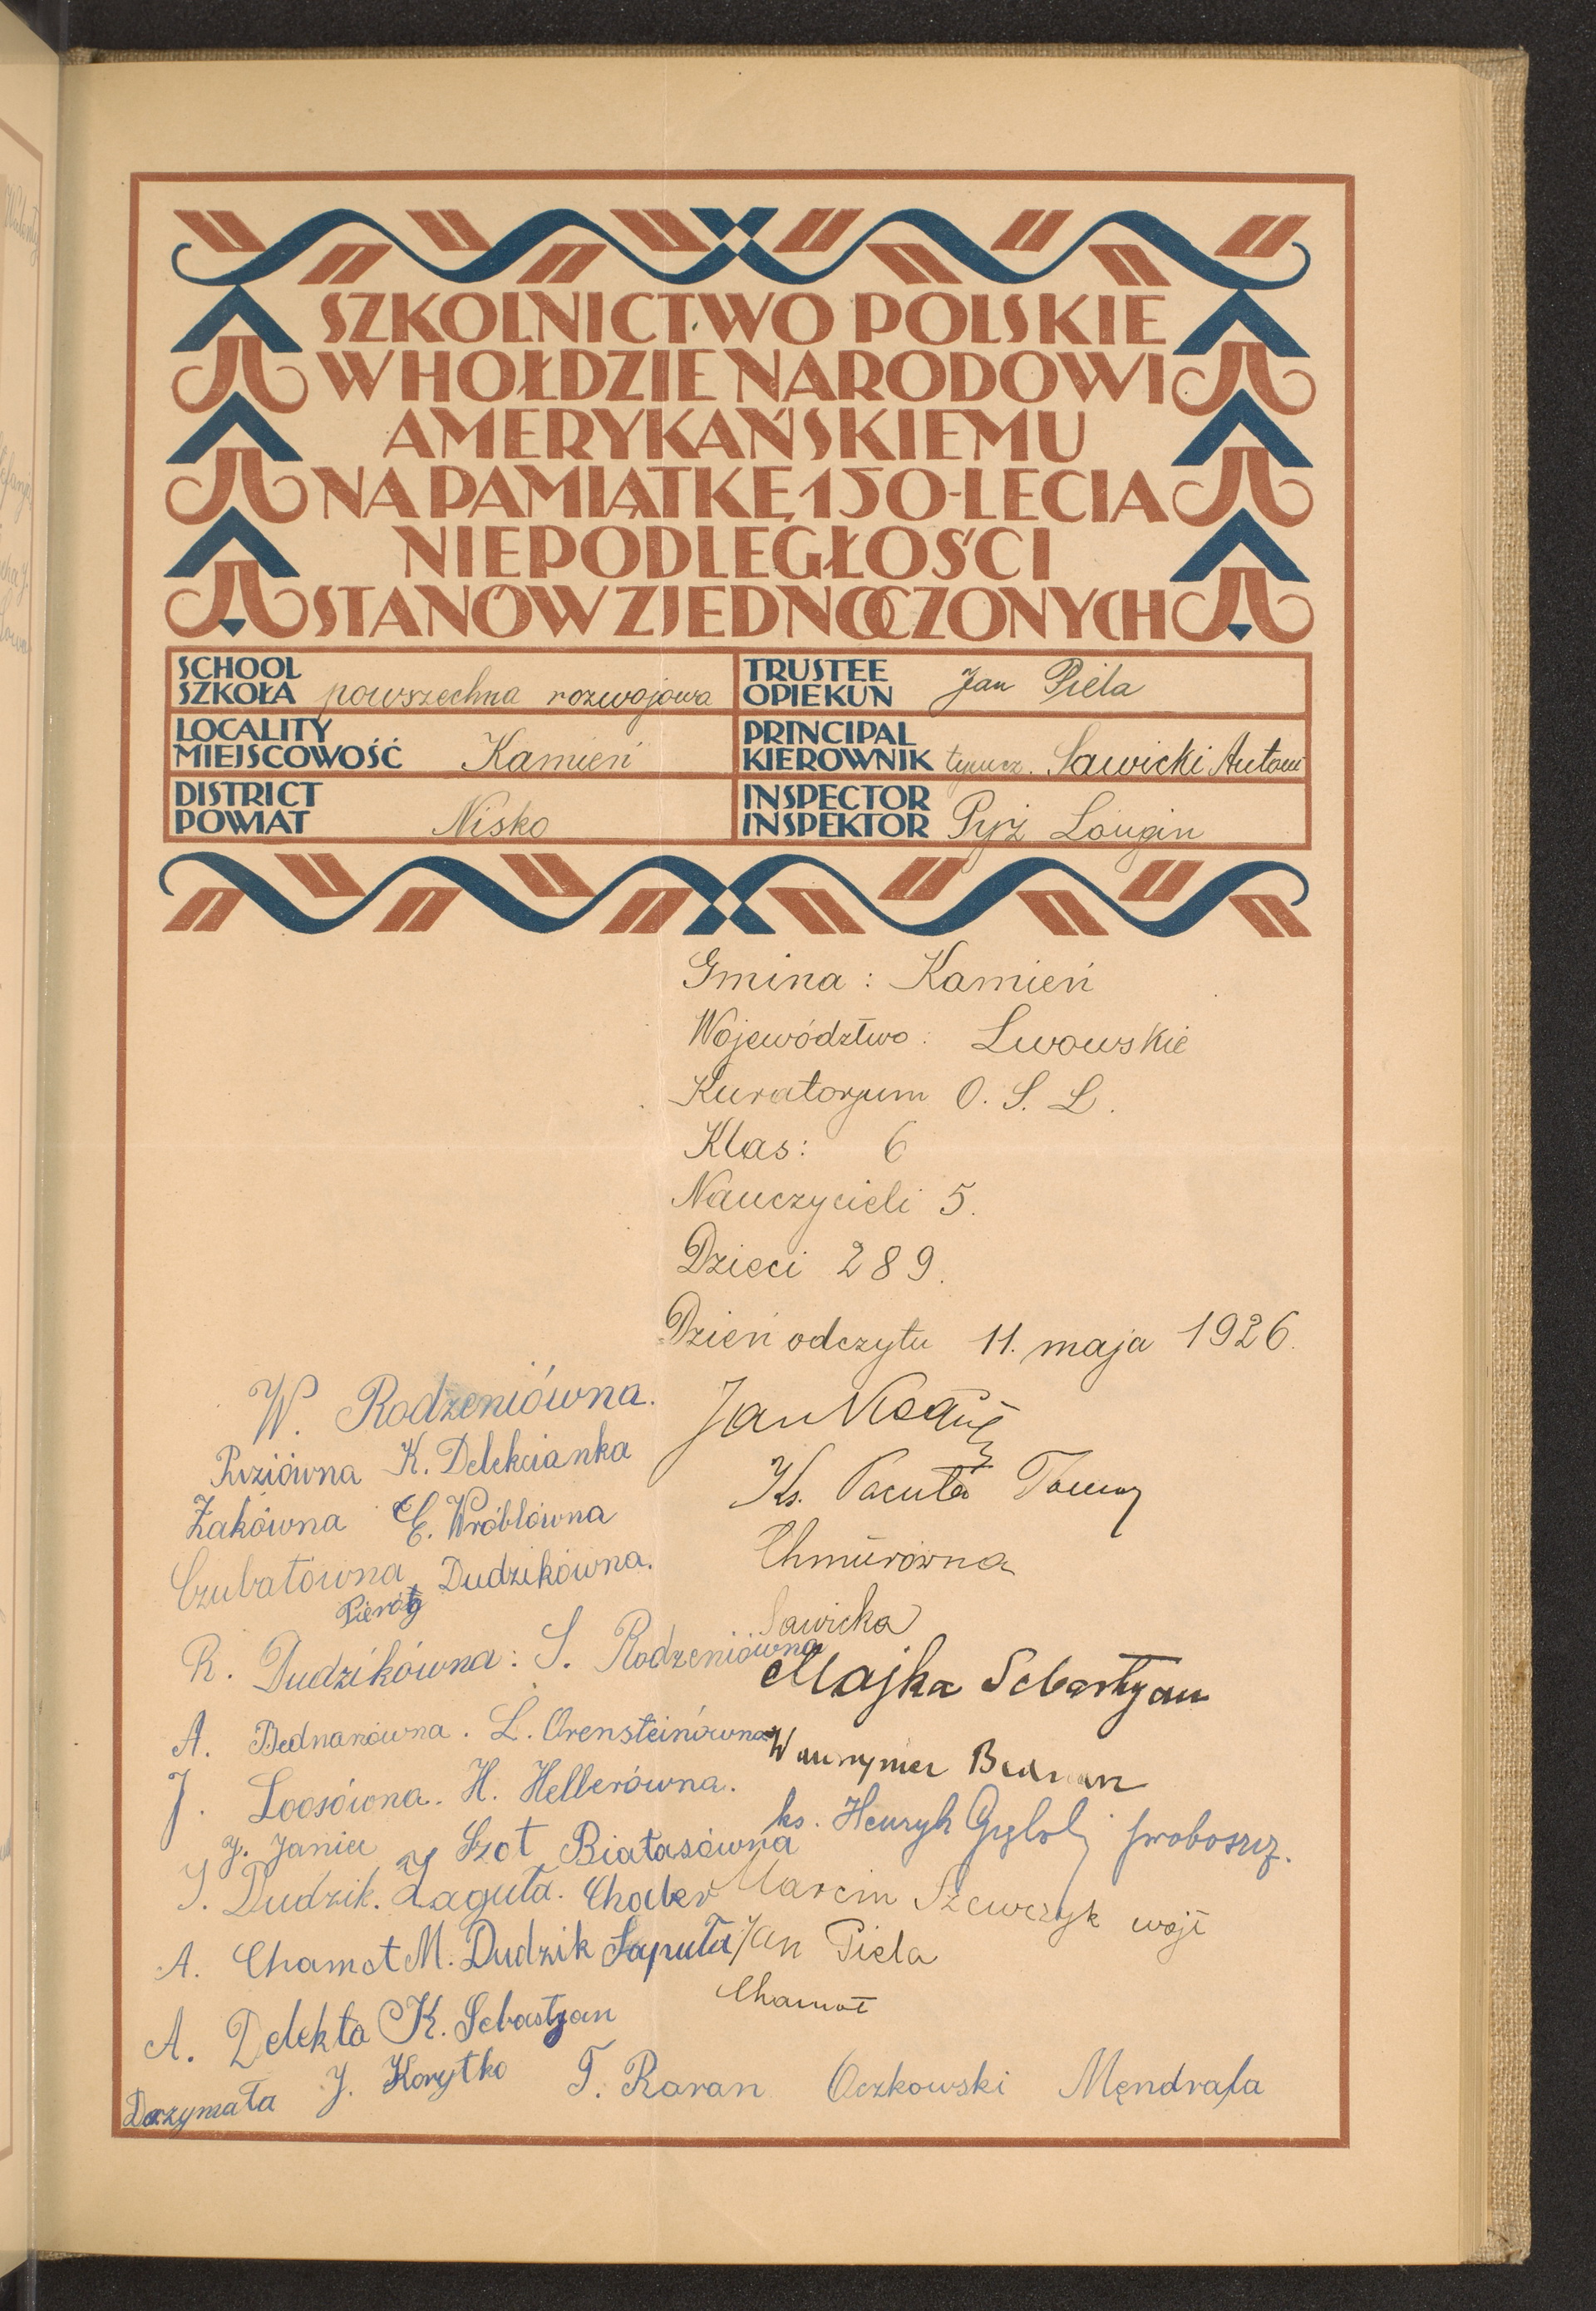 SZKOLNICTWO POLSKIE
W HOŁDZIE NARODOWI
AMERYKAŃSKIEMU
NA PAMIĄTKĘ 150-LECIA
NIEPODLEGŁOŚCI
STANÓW ZJEDNOCZONYCH
SCHOOL
SZKOŁA powszechna rozwojowa
TRUSTEE
OPIEKUN Jan Piela
LOCALITY
MIEJSCOWOŚĆ Kamień
PRINCIPAL
KIEROWNIK Sawicki Antoni
DISTRICT
POWIAT Nisko
INSPECTOR
INSPEKTOR Pyż Longin
Gmina: Kamień
Województwo: Lwowskie
Kuratorjum O. S. L.
Klas: 6
Nauczycieli 5.
Dzieci 289.
Dzień odczytu 11. maja 1926.
W. Rodzeniówna.
K. Delekcianka
Żakówna E. Wróblówna
Czubatówna Dudzikówna.
Pieróg
R. Dudzikówna: S. Rodzeniówna
A. Bednarówna. L. Orensteinówna
J. Loosówna. H. Hellerówna.
J. Janiec Szot Białasówna
S. Dudzik. Łaguła. Choder
A. Chamot M. Dudzik Sapuła
A. Delekta K. Sebastyan
Darzymała J. Korytko T. Raran Oczkowski Mendrala
Jan
Ks. Pacuła
Chmurówna
Sawicka
Majka Sebastyan
Wawrzyniec Bednarz
ks. Henryk proboszcz.
Marcin Szewczyk wójt
Jan Piela
Chamot